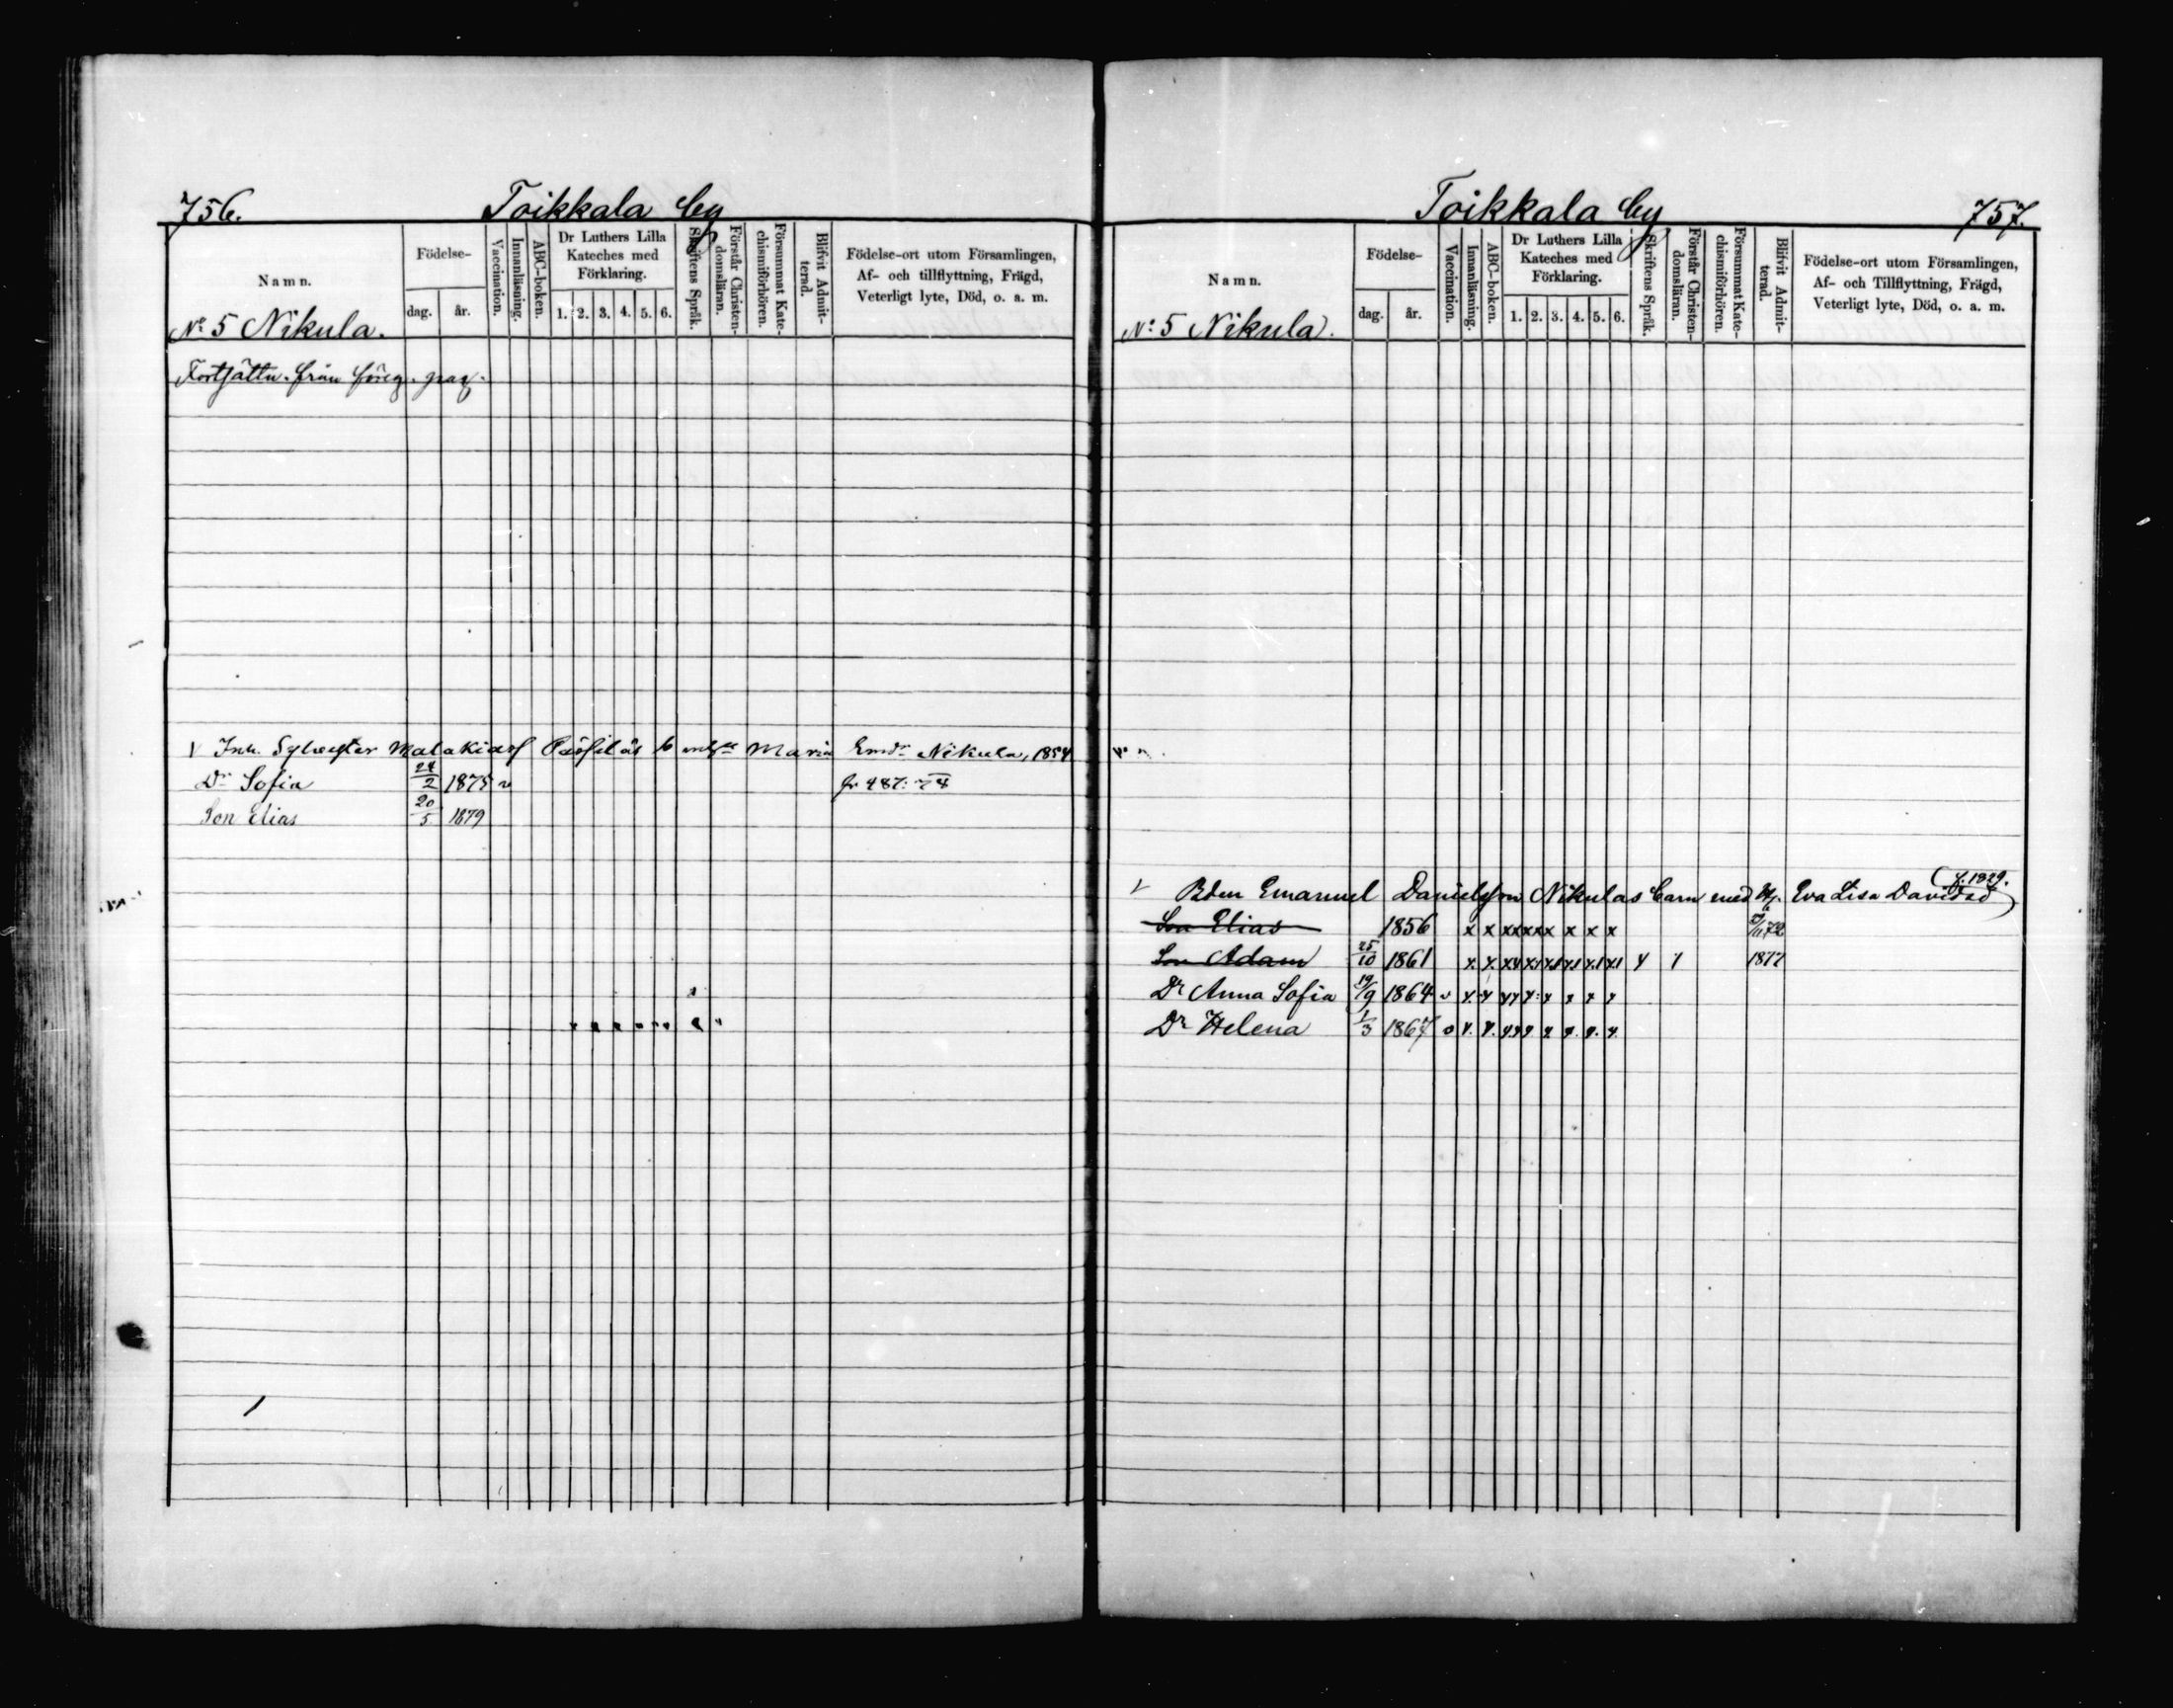 756. Toikkala by
Namn. Födelse- dag. år. Vaccination. Innanläsning. ABC-boken. Dr Luthers Lilla Kateches med Förklaring. 1. 2. 3. 4. 5. 6. Skriftens Språk. Förstår Christendomsläran. Försummat Katechismiförhören. Blifvit Admitterad. Födelse-ort utom Församlingen, Af- och tillflyttning, Frägd, Veterligt lyte, Död, o. a. m.
No 5 Nikula.
Fortsättn. från föreg. pag.
V Inh. Sylvester Malakias b Maria Emdr Nikula, 1854
Dr Sofia 24/2 1875 v fr 487:
Son Elias 20/5 1879
Toikkala by 757.
Namn. Födelse- dag. år. Vaccination. Innanläsning. ABC-boken. Dr Luthers Lilla Kateches med Förklaring. 1. 2. 3. 4. 5. 6. Skriftens Språk. Förstår Christendomsläran. Försummat Katechismiförhören. Blifvit Admitterad. Födelse-ort utom Församlingen, Af- och Tillflyttning, Frägd, Veterligt lyte, Död, o. a. m.
No 5 Nikula.
(f. 1829.
V Bden Emanuel Danielsson Nikulas barn med Eva Lisa Davidsd)
Son Elias 1856 x x xx xx x x x x
Son Adam 25/10 1861 1877
Dr Anna Sofia 19/9 1864 v
Dr Helena 1/3 1867